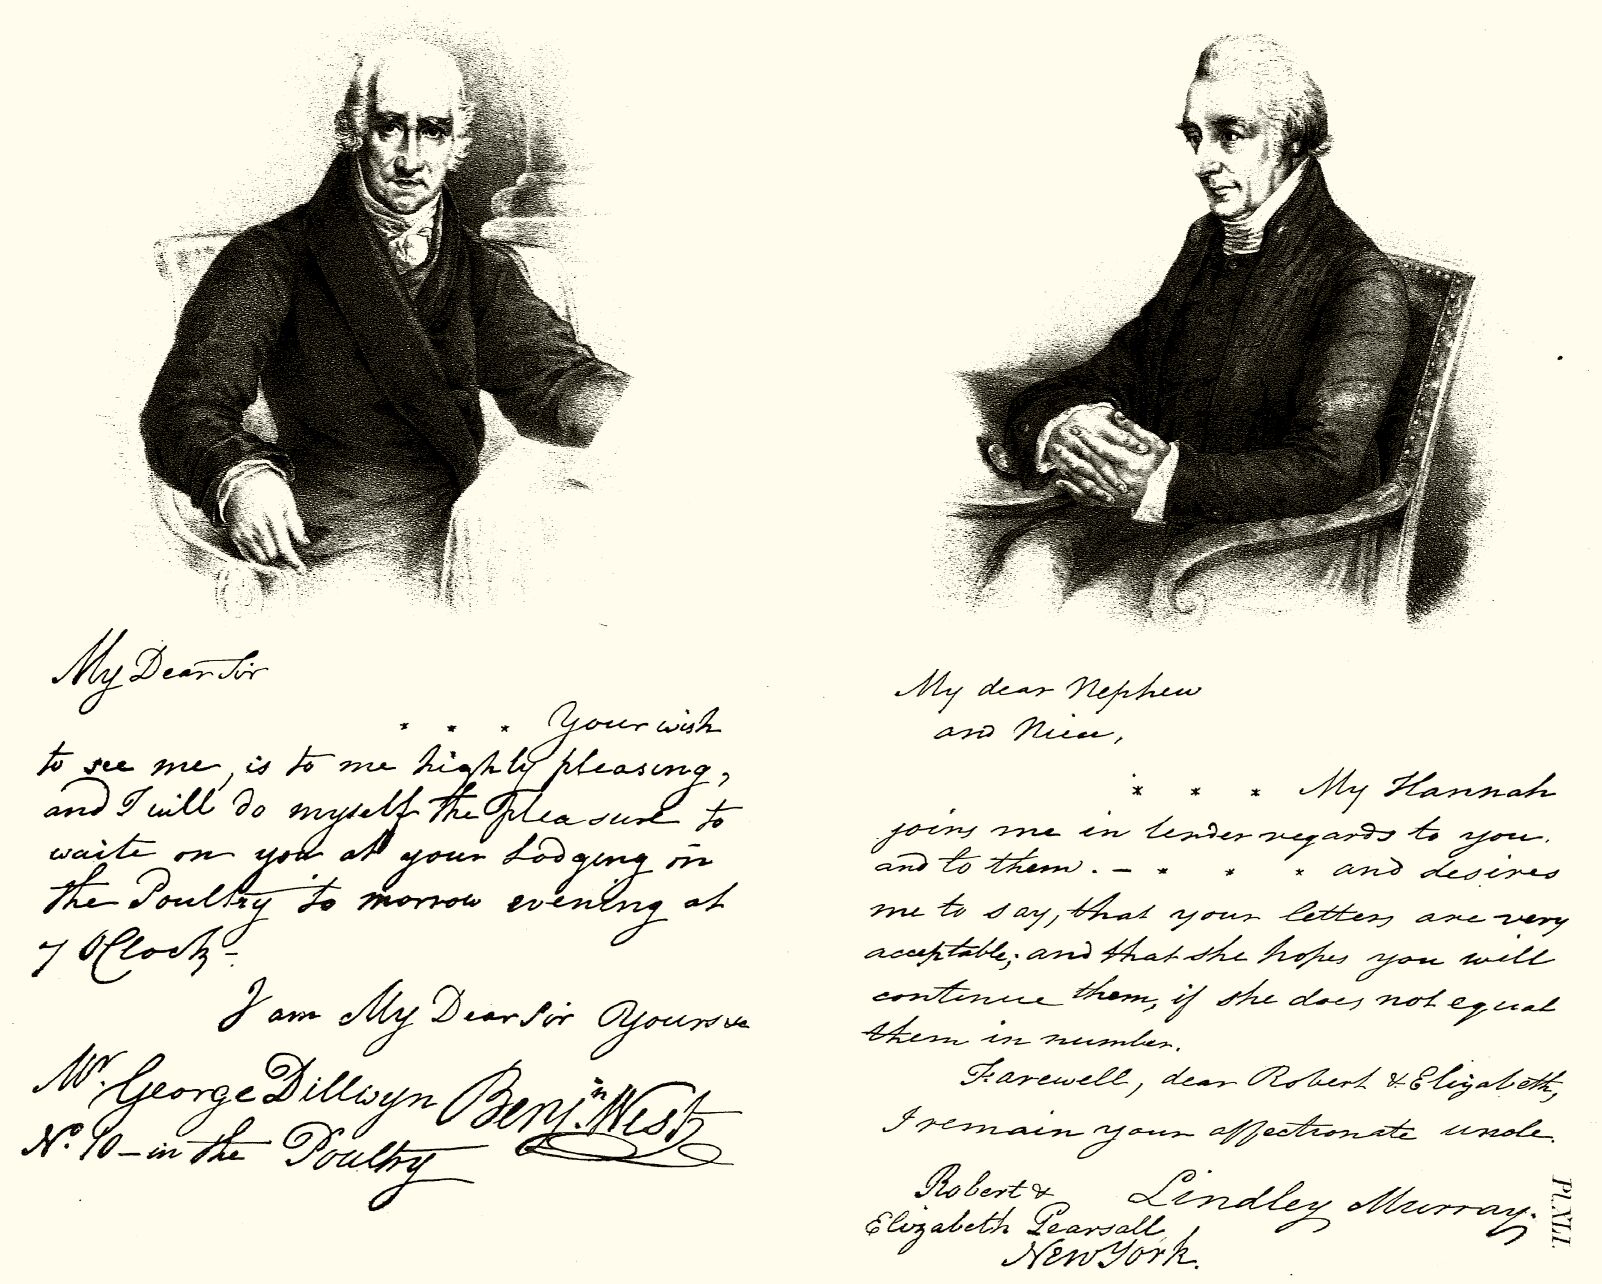 My Dear Sir
* * * Your wish
to see me, is to me highly pleasing,
and I will do myself the pleasure to
waite on you at your Lodging in
the Poultry to morrow evening at
7 OClock-
I am My Dear Sir Yours &c
Mr. George Dillwyn Benjn. West
No. 10 - in the Poultry
My dear Nephew
and Niece,
* * * My Hannah
joins me in tender regards to you.
and to them. - * * * and desires
me to say, that your letters are very
acceptable; and that she hopes you will
continue them, if she does not equal
them in number.
Farewell, dear Robert & Elizabeth,
I remain your affectionate uncle.
Lindley Murray.
Robert &
Elizabeth Pearsall,
New York.
Pl. XLI.